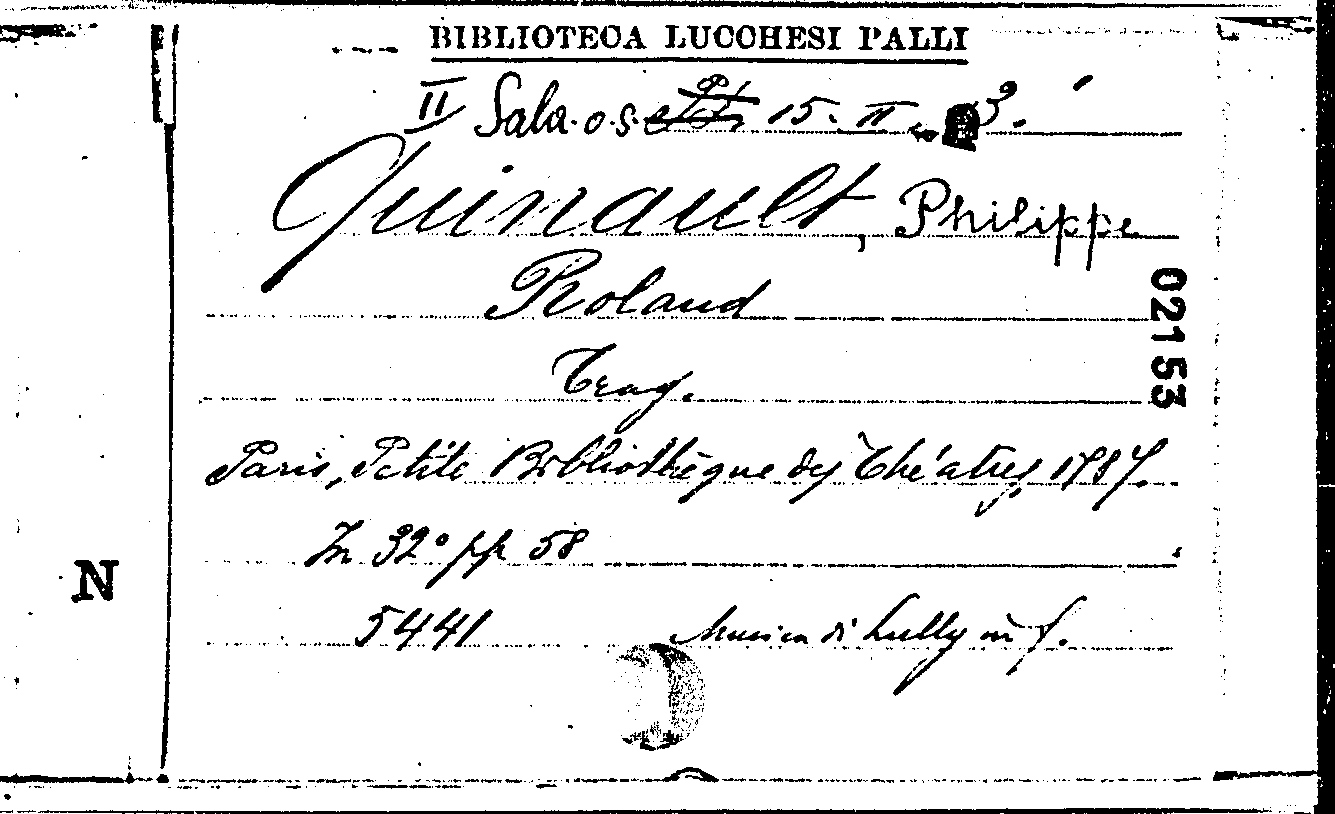 BIBLIOTECA LUCCHESI PALLI
II Sala. 15. II. 3.
Quinault, Philippe
Roland
02153
Trag.
Paris, Petite Bibliothèque des Théatres 1787.
In 32° pp 58
N
5441 Musica di Lully in f.